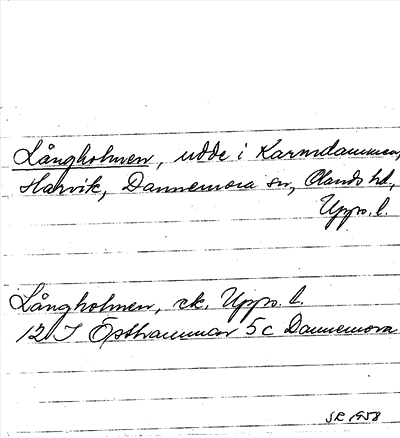 Långholmen, udde i Karmdammen,
Harvik, Dannemora sn, Olands hd,
Upps. l.
Långholmen, ek. Upps. l.
12 I Östhammar 5 c Dannemora
SR 1958